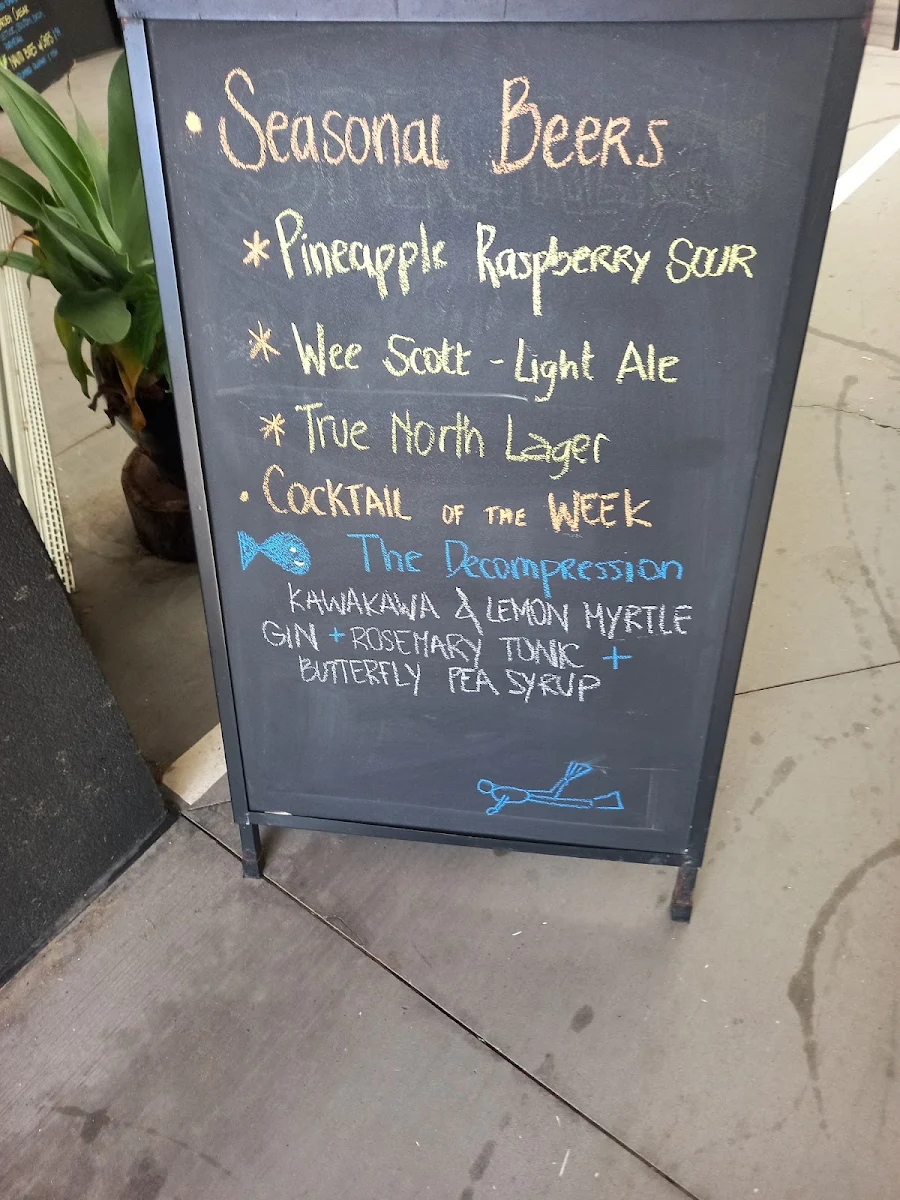 • Seasonal Beers
* Pineapple Raspberry Sour
* Wee Scott - Light Ale
* True North Lager
• COCKTAIL OF THE WEEK
The Decompression
KAWAKAWA & LEMON MYRTLE
GIN + ROSEMARY TONIC +
BUTTERFLY PEA SYRUP